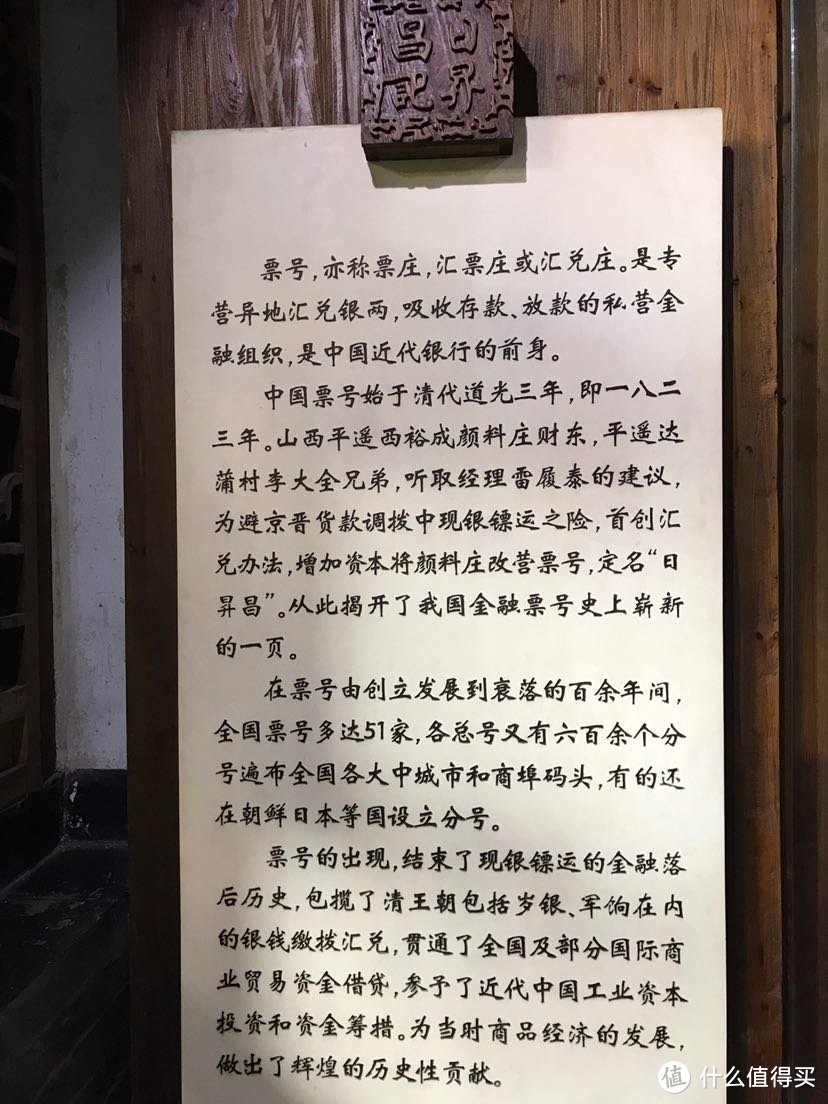 日昇
昌记
票号，亦称票庄，汇票庄或汇兑庄。是专
营异地汇兑银两，吸收存款、放款的私营金
融组织，是中国近代银行的前身。
中国票号始于清代道光三年，即一八二
三年。山西平遥西裕成颜料庄财东，平遥达
蒲村李大全兄弟，听取经理雷履泰的建议，
为避京晋货款调拨中现银镖运之险，首创汇
兑办法，增加资本将颜料庄改营票号，定名“日
昇昌”。从此揭开了我国金融票号史上崭新
的一页。
在票号由创立发展到衰落的百余年间，
全国票号多达51家，各总号又有六百余个分
号遍布全国各大中城市和商埠码头，有的还
在朝鲜日本等国设立分号。
票号的出现，结束了现银镖运的金融落
后历史，包揽了清王朝包括岁银、军饷在内
的银钱缴拨汇兑，贯通了全国及部分国际商
业贸易资金借贷，参予了近代中国工业资本
投资和资金筹措。为当时商品经济的发展，
做出了辉煌的历史性贡献。
值 什么值得买